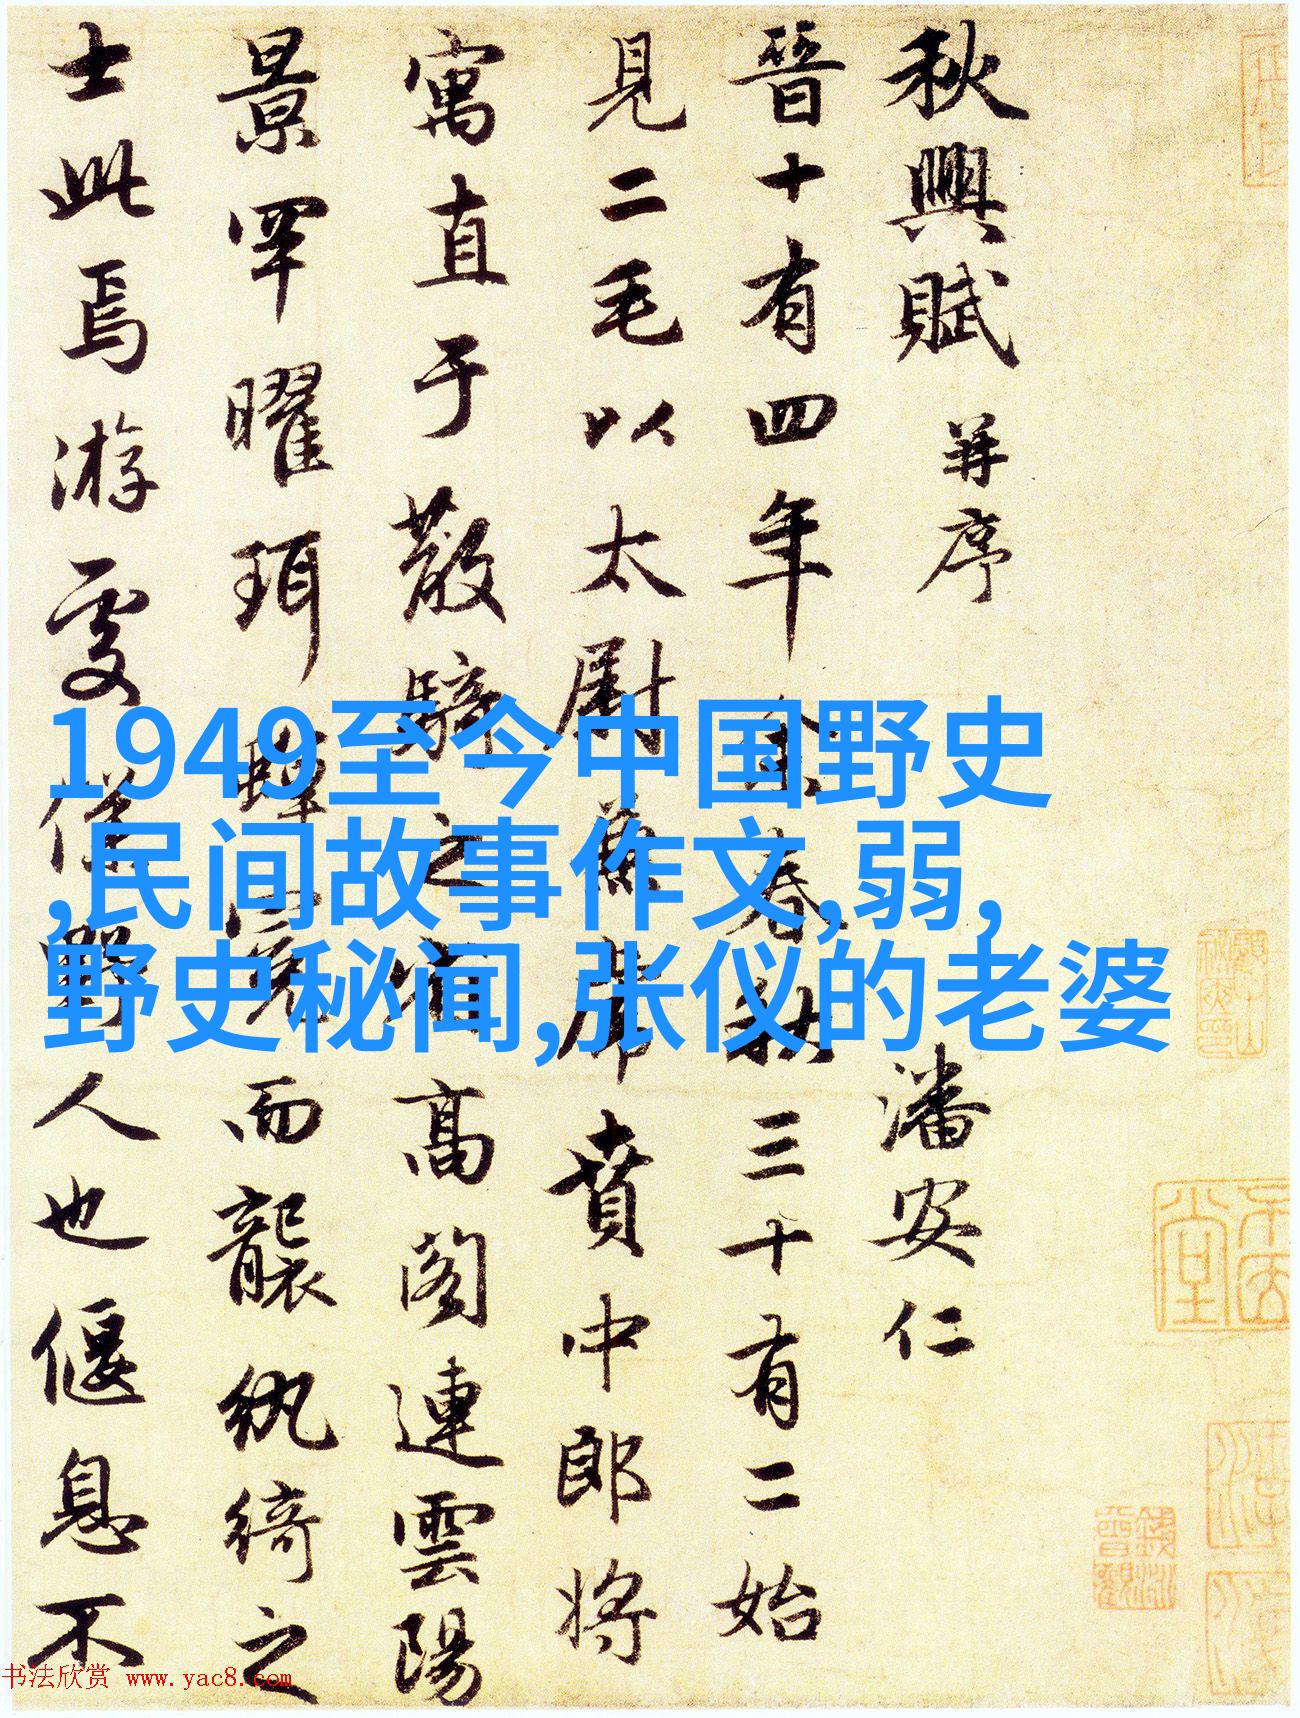 秋興賦 并序 潘安仁
晉十有四年余春秋三十有二始
見二毛以太尉掾兼虎賁中郎將
寓直于散騎之省高閣連雲陽
景罕曜珥蟬冕而襲紈綺之
士此焉游處僕野人也偃息不
1949至今中国野史
,民间故事作文,弱,
野史秘闻,张仪的老婆
书法欣赏 www.yac8.com